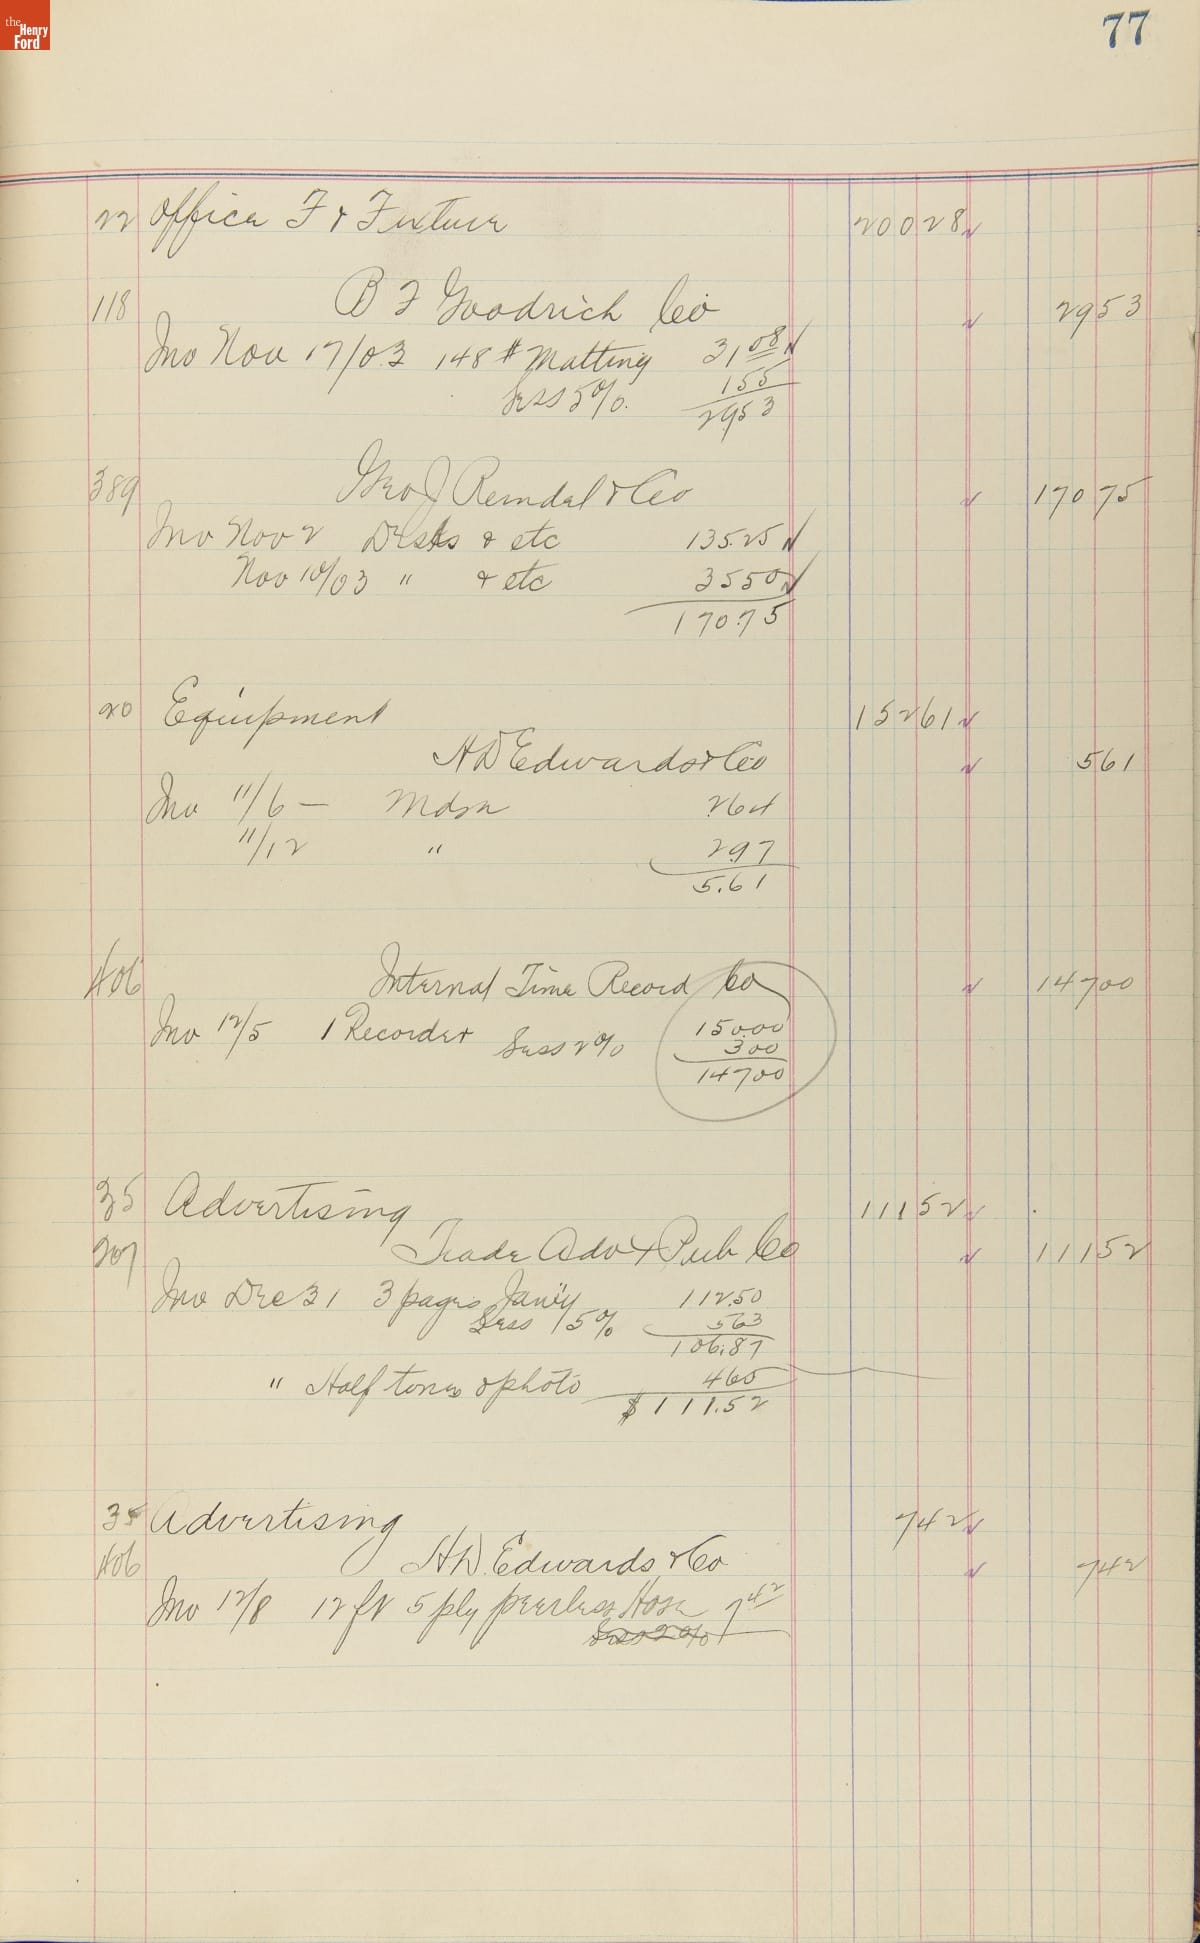 the Henry Ford
77
22 Office F & Fixture 200 28
118 B F Goodrich Co 29 53
Inv Nov 17/03 148 # Matting 31 08
Less 5% 1 55
29 53
389 Geo J Reindel & Co 170 75
Inv Nov 2 Desks & etc 135.25
Nov 10/03 " & etc 35 50
170.75
20 Equipment 152 61
H D Edwards & Co 5 61
Inv 11/6 — Mdse 2.64
11/12 " 2.97
5.61
406 Internal Time Record Co 147 00
Inv 12/5 1 Recorder Less 2% 150.00
3 00
147 00
35 Advertising 111 52
207 Trade Adv & Pub Co 111 52
Inv Dec 31 3 pages Jan'y 112.50
Less 5% 5 63
106.87
" Half tones & photo 4 65
$ 111.52
35 Advertising 7 42
406 H D. Edwards & Co 7 42
Inv 12/8 12 ft 5 ply peerless Hose 7 42
Less 2%